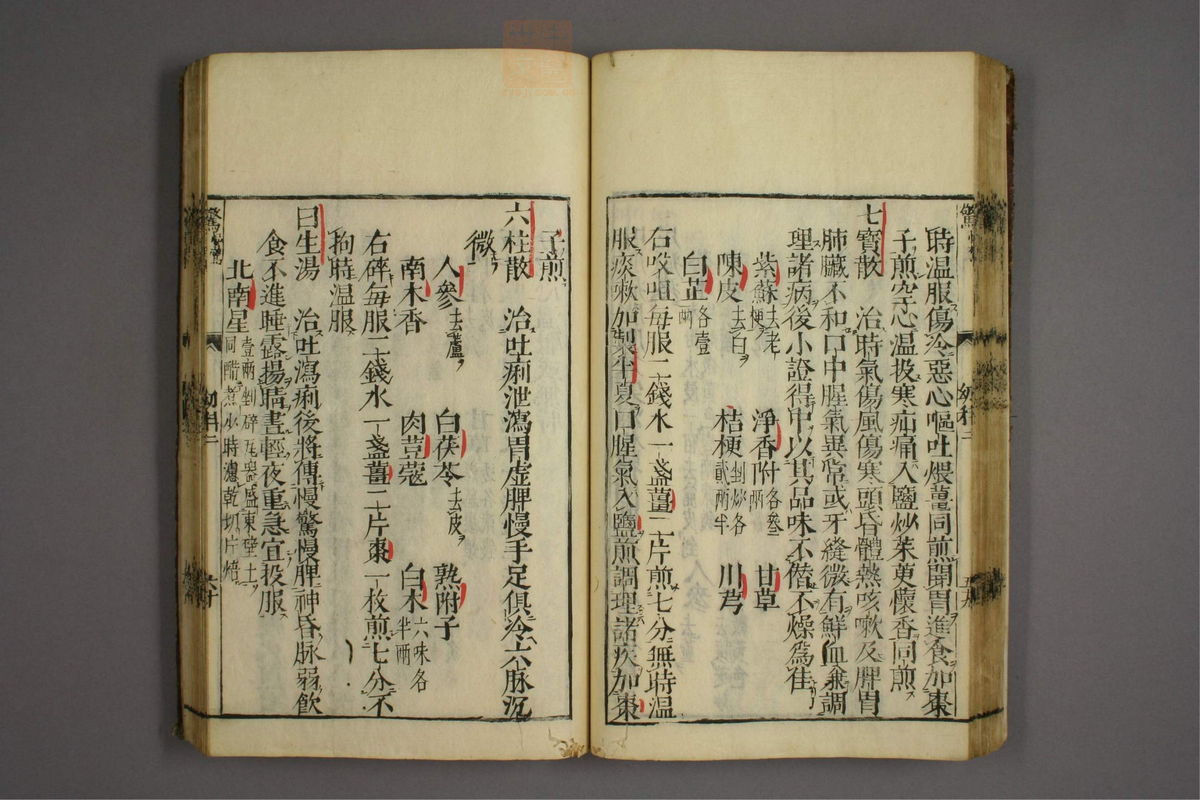 時温服傷冷惡心嘔吐煨薑同煎開胃進食加棗
子煎空心温投寒疝痛入鹽炒茱萸懷香同煎
七寶散　治時氣傷風傷寒頭昏體熱咳嗽及脾胃
肺臟不和口中腥氣異常或牙縫微有鮮血兼調
理諸病後小證得中以其品味不僭不燥爲佳
紫蘇去老梗　淨香附各叄兩　甘草
陳皮去白　桔梗剉炒各貳兩半　川芎
白芷各壹兩
右㕮咀每服二錢水一盞薑二片煎七分無時温
服痰嗽加製半夏口腥氣入鹽煎調理諸疾加棗
子煎
六柱散　治吐痢泄瀉胃虚脾慢手足俱冷六脉沉
微
人參去蘆　白茯苓去皮　熟附子
南木香　肉荳蔻　白术六味各半兩
右碎每服二錢水一盞薑二片棗一枚煎七分不
拘時温服
日生湯　治吐瀉痢後將傳慢驚慢脾神昏脉弱飲
食不進睡露揚睛晝輕夜重急宜投服
北南星壹兩剉碎瓦器盛東壁土同醋煮少時濾乾切片焙
幼科二
五九
幼科二
六十